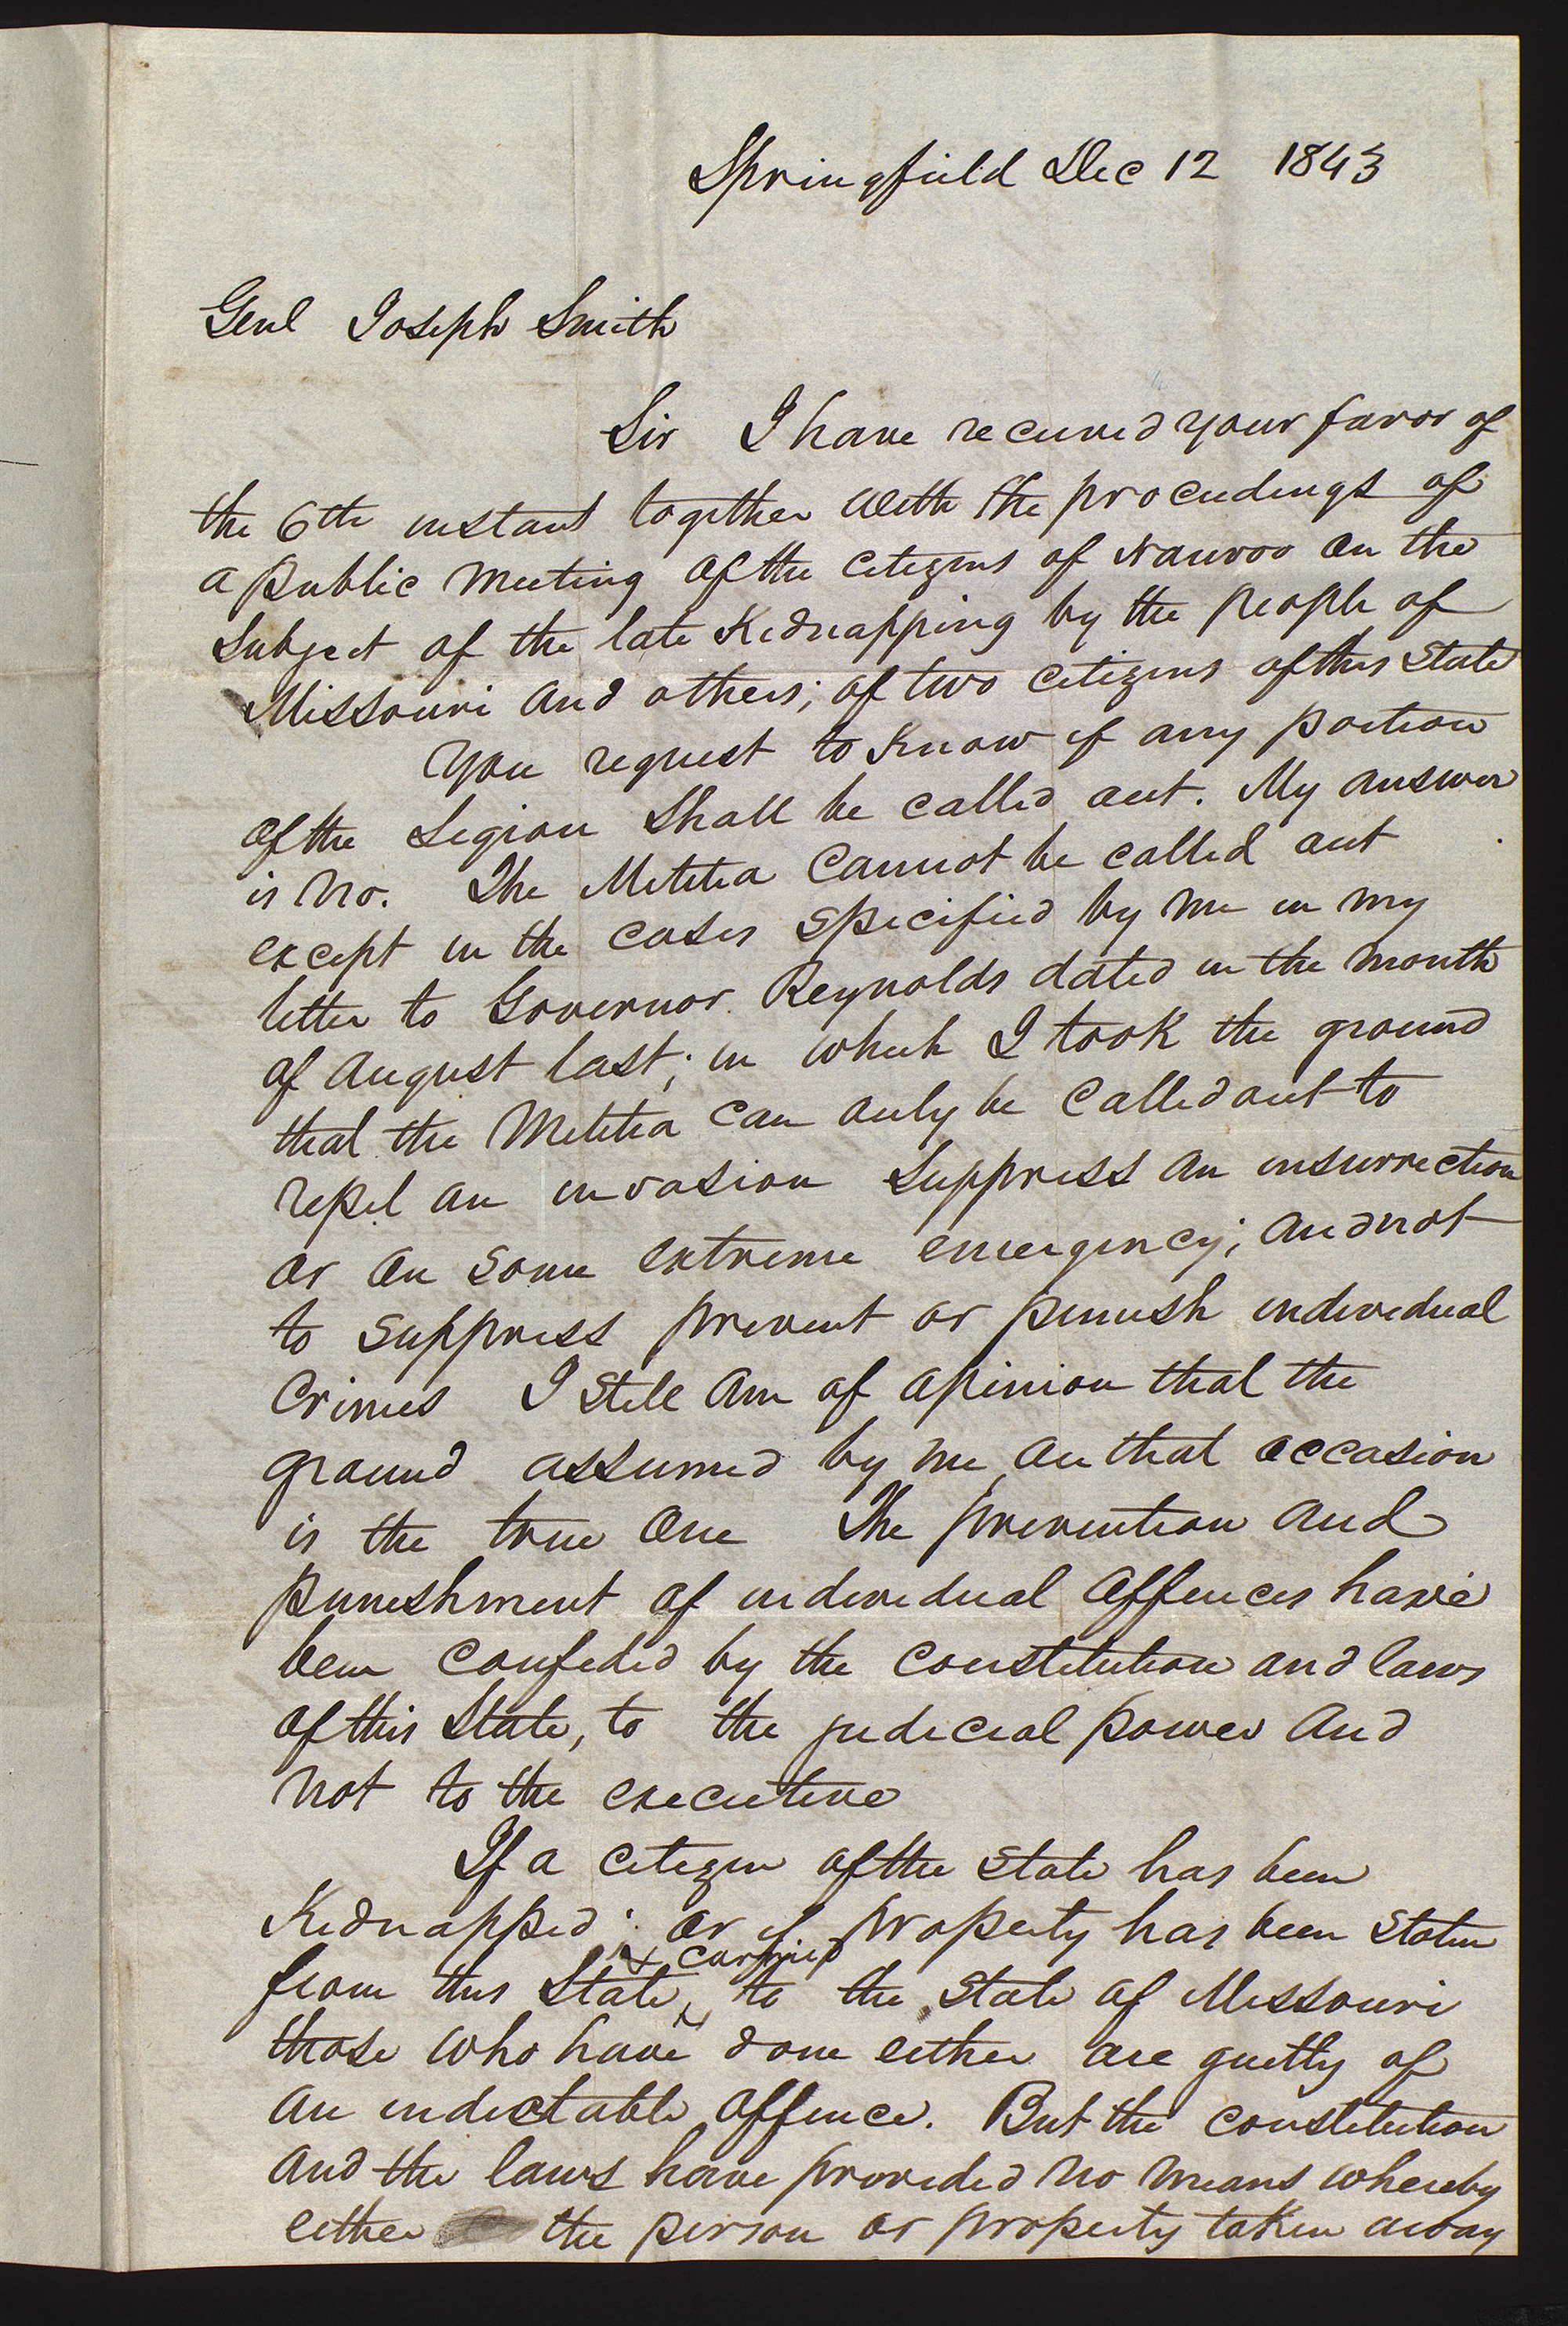 Springfield Dec 12 1843
Genl Joseph Smith
Sir I have received your favor of
the 6th instant together with the proceedings of
a public meeting of the citizens of Nauvoo on the
subject of the late kidnapping by the people of
Missouri and others; of two citizens of this State
You request to know if any portion
of the Legion shall be called out. My answer
is No. The Militia cannot be called out
except in the cases specified by me in my
letter to Governor Reynolds dated in the month
of August last; in which I took the ground
that the Militia can only be called out to
repel an invasion suppress an insurrection
or on some extreme emergency; and not
to suppress prevent or punish individual
crimes I still am of opinion that the
ground assumed by me on that occasion
is the true one The prevention and
punishment of individual offences have
been confided by the constitution and laws
of this State, to the judicial power and
not to the executive
If a citizen of the State has been
kidnapped; or if property has been stolen
& carried
from this State, to the State of Missouri
those who have done either are guilty of
an indictable offence. But the constitution
and the laws have provided no means whereby
either the person or property taken away